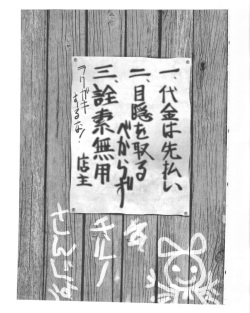 一、代金は先払い
二、目隠を取る
べからず
三、詮索無用
店主
ラクガキ
するな!
チルノ
さんじょう